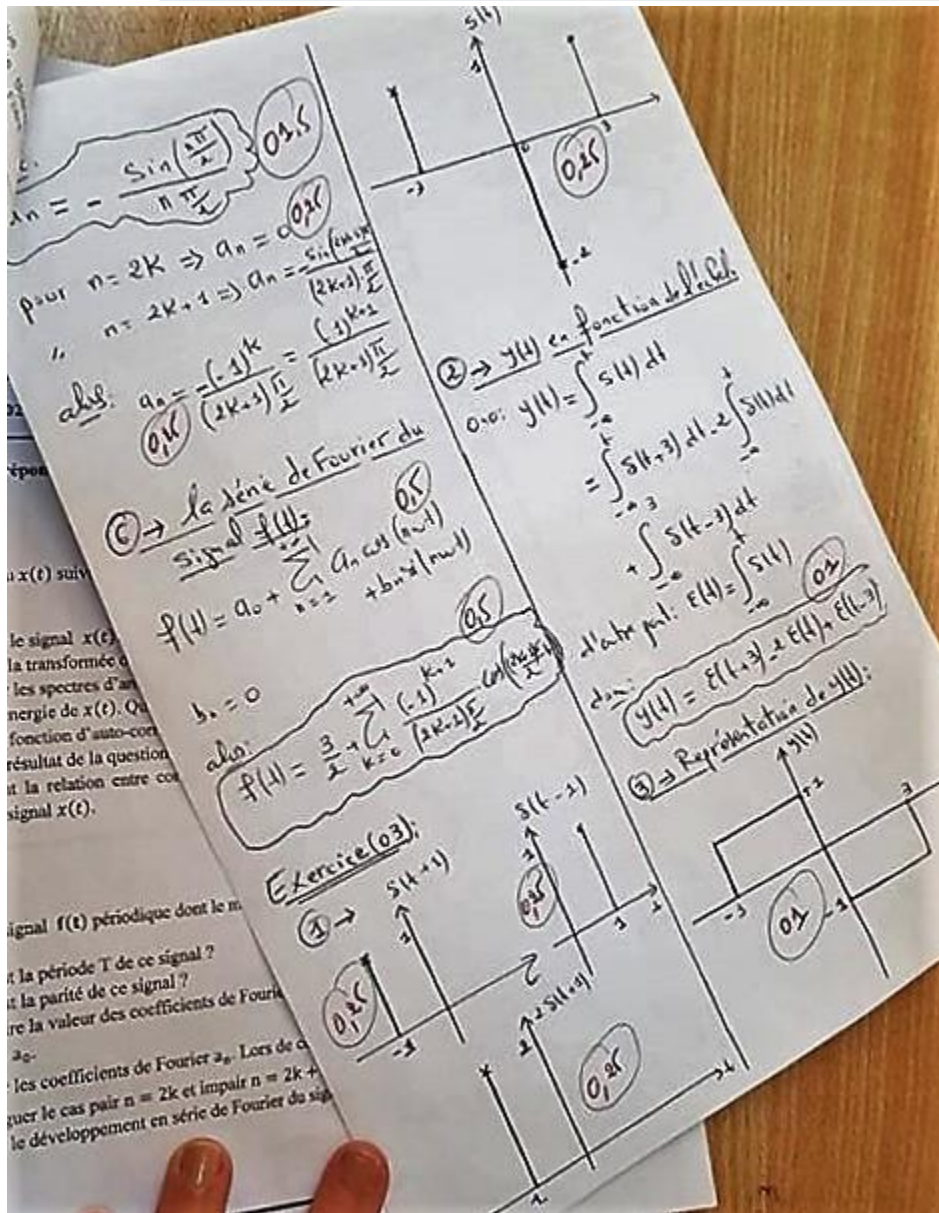 an = - Sin(nπ/2) / n π/2
01,5
pour n = 2K ⇒ an = 0
0,25
n = 2K+1 ⇒ an = -sin((2K+1)π/2) / (2K+1)π/2
alors: an = -(-1)^K / (2K+1)π/2 = (-1)^{K+1} / (2K+1)π/2
0,25
C → la série de Fourier du
signal f(t):
0,5
f(t) = a0 + Σ_{n=1}^{+∞} an cos(nωt)
+ bn sin(nωt)
0,5
bn = 0
alors:
f(t) = 3/2 + Σ_{k=0}^{+∞} (-1)^{K+1} / (2K+1)π/2
Exercice (03):
① →
δ(t+1)
1
0,25
-1
δ(t-1)
1
0,25
1
2
2
0,25
1
t
S(t)
1
-3
0
3
0,25
-2
② → y(t) en fonction de l'échel.
y(t) = ∫_{-∞}^{t} s(t) dt
= ∫_{-∞}^{t} δ(t+3) dt - 2 ∫_{-∞}^{t} δ(t) dt
+ ∫_{-∞} δ(t-3) dt
d'autre part: ε(t) = ∫_{-∞}^{t} δ(t)
01
donc:
y(t) = ε(t+3) - 2 ε(t) + ε(t-3)
③ → Représentation de y(t):
y(t)
3
-3
-1
01
répon
x(t) suiv
le signal x(t)
la transformée
les spectres d'am
nergie de x(t). Qu
fonction d'auto-cor
résultat de la question
t la relation entre co
signal x(t).
ignal f(t) périodique dont le m
t la période T de ce signal ?
t la parité de ce signal ?
re la valeur des coefficients de Fourie
a0.
les coefficients de Fourier an. Lors de
guer le cas pair n = 2k et impair n = 2k +
le développement en série de Fourier du sig